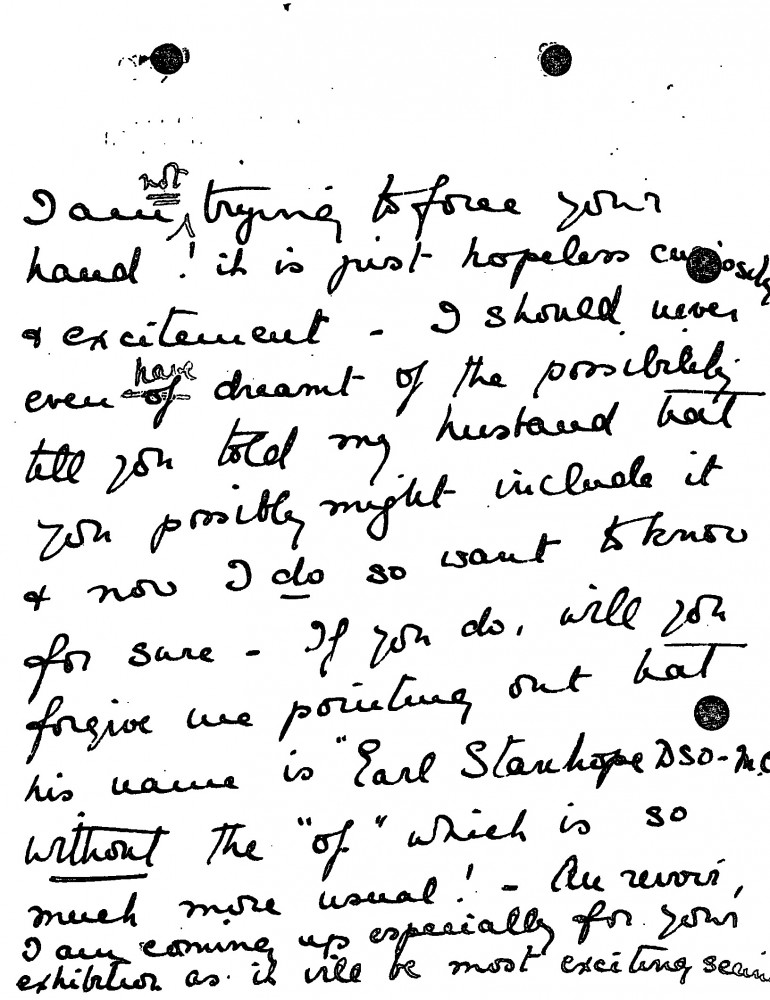 not
I am trying to force your
hand! it is just hopeless curiosity
& excitement - I should never
have
even of dreamt of the possibility
till you told my husband that
you possibly might include it
& now I do so want to know
for sure - If you do, will you
forgive me pointing out that
his name is "Earl Stanhope DSO-M.C
without the "of" which is so
much more usual! - Au revoir,
I am coming up especially for your
exhibition as it will be most exciting seein